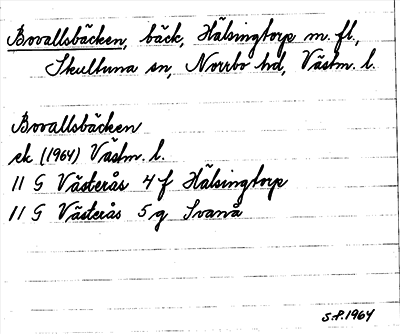 Bovallsbäcken, bäck, Hälsingtorp m. fl,
Skultuna sn, Norrbo hd, Västm. l.
Bovallsbäcken
ek (1964) Västm. l.
11 G Västerås 4 f Hälsingtorp
11 G Västerås 5 g Svanå
S.P. 1964